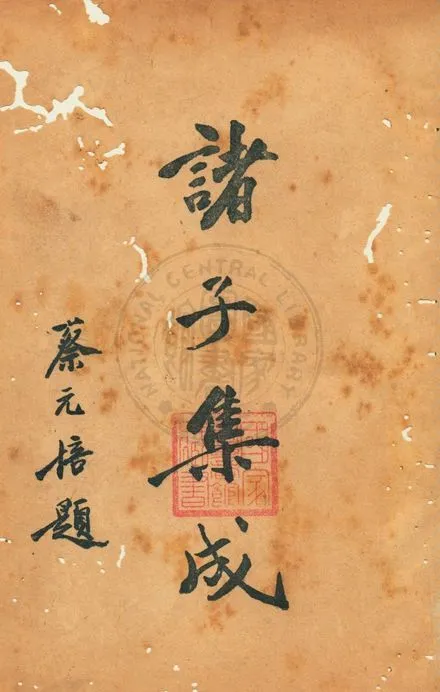 諸子集成
蔡元培題
NATIONAL CENTRAL LIBRARY